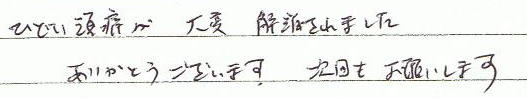 ひどい頭痛が 大変 解消されました
ありがとうございます 次回も お願いします